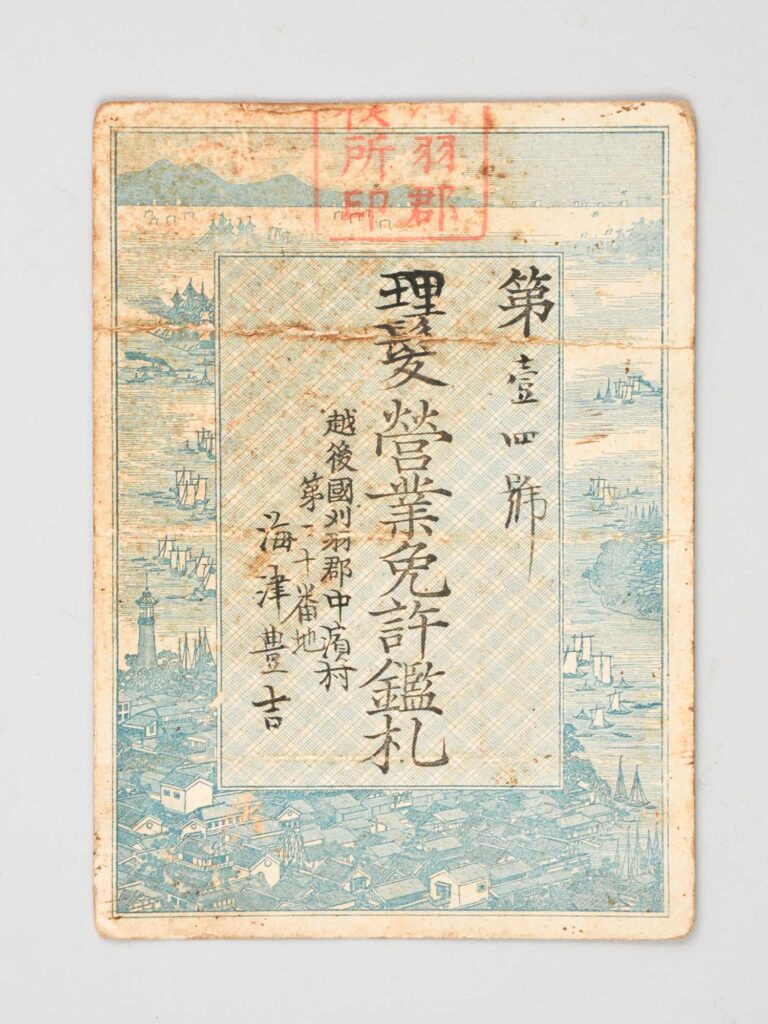 羽郡
役所印
第壹四號
理髪營業免許鑑札
越後國刈羽郡中濱村
第一十番地
海津豊吉